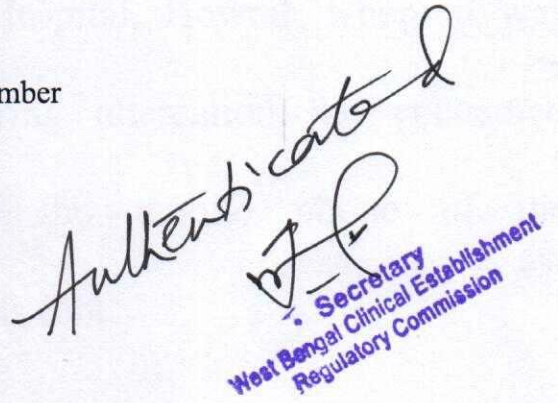 mber
Authenticated
Secretary
West Bengal Clinical Establishment
Regulatory Commission